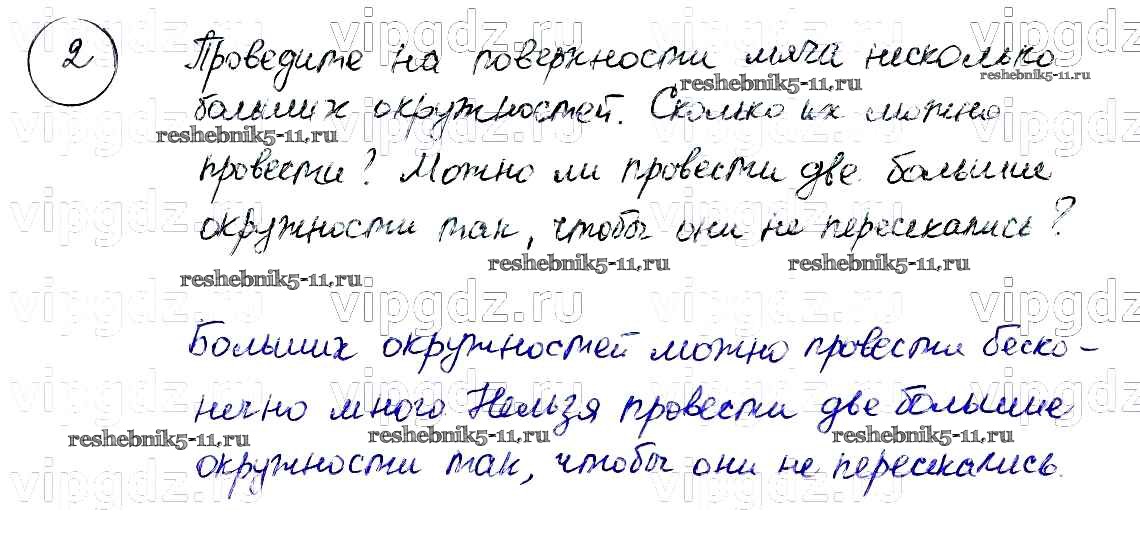 2
Проведите на поверхности мяча несколько
больших окружностей. Сколько их можно
провести? Можно ли провести две большие
окружности так, чтобы они не пересекались?
Больших окружностей можно провести беско-
нечно много. Нельзя провести две большие
окружности так, чтобы они не пересекались.
vipgdz.ru
reshebnik5-11.ru